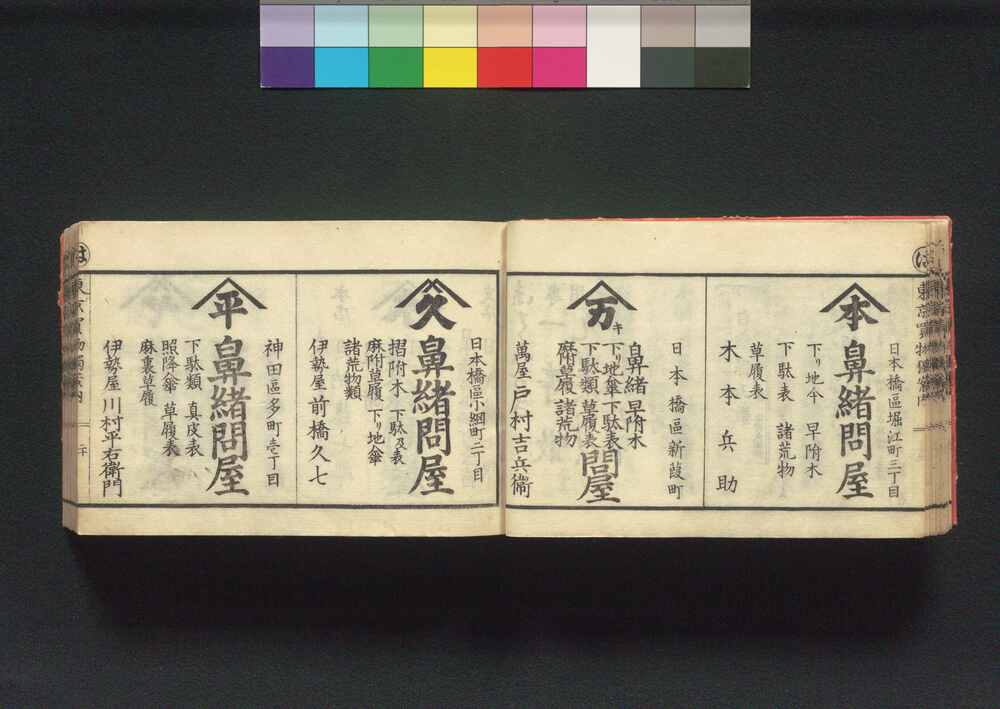 は
日本橋區堀江町三丁目
本
鼻緒問屋
下リ地傘 早附木
下駄表 諸荒物
草履表
木本兵助
日本橋區新葭町
万
キ
鼻緒 早附木
下リ地傘 下駄表
下駄類 草履表
麻附草履 諸荒物
問屋
萬屋 戸村吉兵衞
日本橋區小網町二丁目
久
鼻緒問屋
摺附木 下駄及表
麻附草履 下リ地傘
諸荒物類
伊勢屋 前橋久七
神田區多町壱丁目
平
鼻緒問屋
下駄類 真皮表
照降傘 草履表
麻裏草履
伊勢屋 川村平右衞門
は